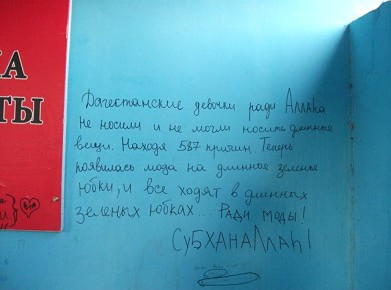 НА
ТЫ
Дагестанские девочки ради Аллаhа
не носили и не могли носить длинные
вещи. Находя 587 причин Теперь
появилась мода на длинное зеленые
юбки, и все ходят в длинных
зеленых юбках... Ради моды!
СУБХАНАЛЛАh!